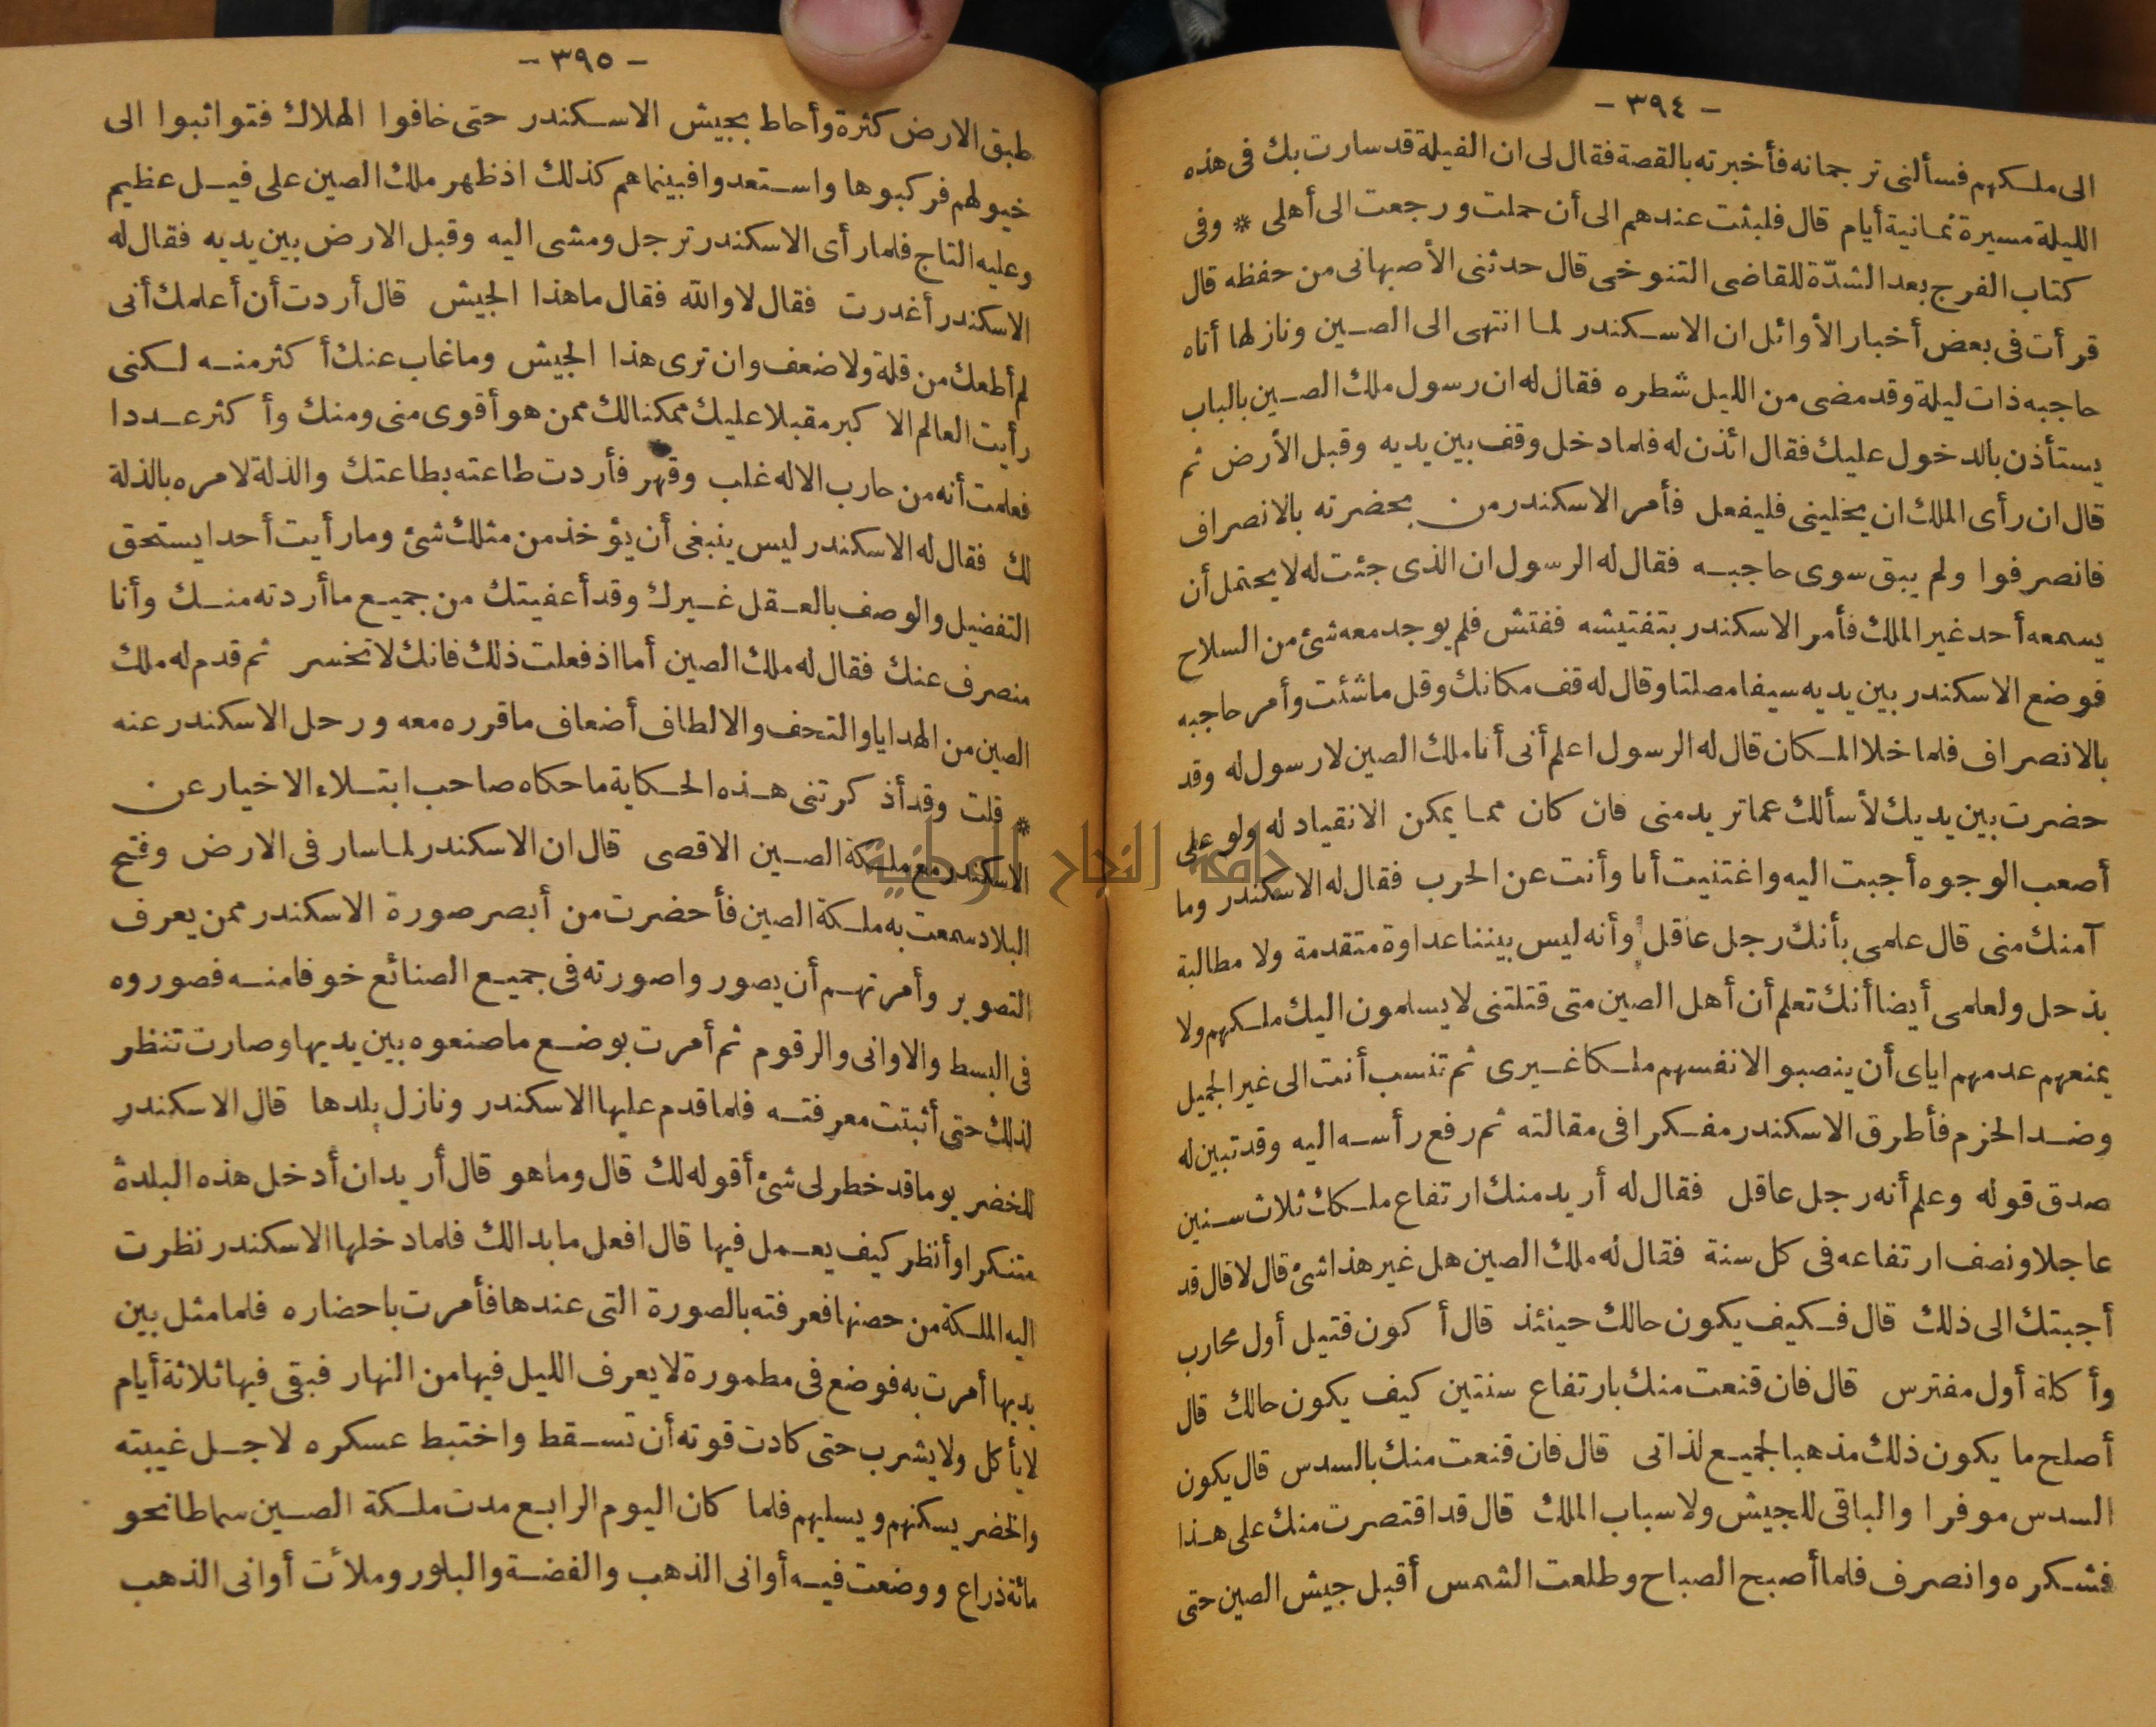 - ٣٩٤ -
الى ملكهم فسألنى ترجمانه فأخبرته بالقصة فقال لى ان الفيلة قد سارت بك فى هذه
الليلة مسيرة ثمانية أيام قال فلبثت عندهم الى أن حملت ورجعت الى أهلى * وفى
كتاب الفرج بعد الشدّة للقاضى التنوخى قال حدثنى الأصبهانى من حفظه قال
قرأت فى بعض أخبار الأوائل ان الاسكندر لما انتهى الى الصين ونازلها أتاه
حاجبه ذات ليلة وقد مضى من الليل شطره فقال له ان رسول ملك الصين بالباب
يستأذن بالدخول عليك فقال ائذن له فلما دخل وقف بين يديه وقبل الأرض ثم
قال ان رأى الملك ان يخلينى فليفعل فأمر الاسكندر من بحضرته بالانصراف
فانصرفوا ولم يبق سوى حاجبه فقال له الرسول ان الذى جئت له لا يحتمل أن
يسمعه أحد غير الملك فأمر الاسكندر بتفتيشه ففتش فلم يوجد معه شئ من السلاح
فوضع الاسكندر بين يديه سيفا مصلتا وقال له قف مكانك وقل ما شئت وأمر حاجبه
بالانصراف فلما خلا المكان قال له الرسول اعلم أنى أنا ملك الصين لا رسول له وقد
حضرت بين يديك لأسألك عما تريد منى فان كان مما يمكن الانقياد له ولو على
أصعب الوجوه أجبت اليه واغتنيت أنا وأنت عن الحرب فقال له الاسكندر وما
آمنك منى قال علمى بأنك رجل عاقل وأنه ليس بيننا عداوة متقدمة ولا مطالبة
بذحل ولعلمى أيضا أنك تعلم أن أهل الصين متى قتلتنى لا يسلمون اليك ملكهم ولا
يمنعهم عدمهم اياى أن ينصبوا لانفسهم ملكا غيرى ثم تنسب أنت الى غير الجميل
وضد الحزم فأطرق الاسكندر مفكرا فى مقالته ثم رفع رأسه اليه وقد تبين له
صدق قوله وعلم أنه رجل عاقل فقال له أريد منك ارتفاع ملكك ثلاث سنين
عاجلا ونصف ارتفاعه فى كل سنة فقال له ملك الصين هل غير هذا شئ قال لا قال قد
أجبتك الى ذلك قال فكيف يكون حالك حينئذ قال أكون قتيل أول محارب
وأكلة أول مفترس قال فان قنعت منك بارتفاع سنتين كيف يكون حالك قال
أصلح ما يكون ذلك مذهبا لجميع لذاتى قال فان قنعت منك بالسدس قال يكون
السدس موفرا والباقى للجيش ولاسباب الملك قال قد اقتصرت منك على هذا
فشكره وانصرف فلما أصبح الصباح وطلعت الشمس أقبل جيش الصين حتى
- ٣٩٥ -
طبق الارض كثرة وأحاط بجيش الاسكندر حتى خافوا الهلاك فتواثبوا الى
خيولهم فركبوها واستعدوا فبينما هم كذلك اذ ظهر ملك الصين على فيل عظيم
وعليه التاج فلما رأى الاسكندر ترجل ومشى اليه وقبل الارض بين يديه فقال له
الاسكندر أغدرت فقال لا والله فقال ما هذا الجيش قال أردت أن أعلمك أنى
لم أطعك من قلة ولا ضعف وان ترى هذا الجيش وما غاب عنك أكثر منه لكنى
رأيت العالم الاكبر مقبلا عليك ممكنا لك ممن هو أقوى منى ومنك وأكثر عددا
فعلمت أنه من حارب الاله غلب وقهر فأردت طاعته بطاعتك والذلة لامره بالذلة
لك فقال له الاسكندر ليس ينبغى أن يؤخذ من مثلك شئ وما رأيت أحدا يستحق
التفضيل والوصف بالعقل غيرك وقد أعفيتك من جميع ما أردته منك وأنا
منصرف عنك فقال له ملك الصين أما اذ فعلت ذلك فانك لا تخسر ثم قدم له ملك
الصين من الهدايا والتحف والالطاف أضعاف ما قرره معه ورحل الاسكندر عنه
* قلت وقد أذكرتنى هذه الحكاية ما حكاه صاحب ابتلاء الاخيار عن
الاسكندر مع ملكة الصين الاقصى قال ان الاسكندر لما سار فى الارض وفتح
البلاد سمعت به ملكة الصين فأحضرت من أبصر صورة الاسكندر ممن يعرف
التصوير وأمرتهم أن يصوروا صورته فى جميع الصنائع خوفا منه فصوروه
فى البسط والاوانى والرقوم ثم أمرت بوضع ما صنعوه بين يديها وصارت تنظر
لذلك حتى أثبتت معرفته فلما قدم عليها الاسكندر ونازل بلدها قال الاسكندر
للخضر يوما قد خطر لى شئ أقوله لك قال وما هو قال أريد ان أدخل هذه البلدة
متنكرا وأنظر كيف يعمل فيها قال افعل ما بدا لك فلما دخلها الاسكندر نظرت
اليه الملكة من حصنها فعرفته بالصورة التى عندها فأمرت باحضاره فلما مثل بين
يديها أمرت به فوضع فى مطمورة لا يعرف الليل فيها من النهار فبقى فيها ثلاثة أيام
لا يأكل ولا يشرب حتى كادت قوته أن تسقط واختبط عسكره لاجل غيبته
والخضر يسكنهم ويسليهم فلما كان اليوم الرابع مدت ملكة الصين سماطا نحو
مائة ذراع ووضعت فيه أوانى الذهب والفضة والبلور وملأت أوانى الذهب
جامعة النجاح الوطنية